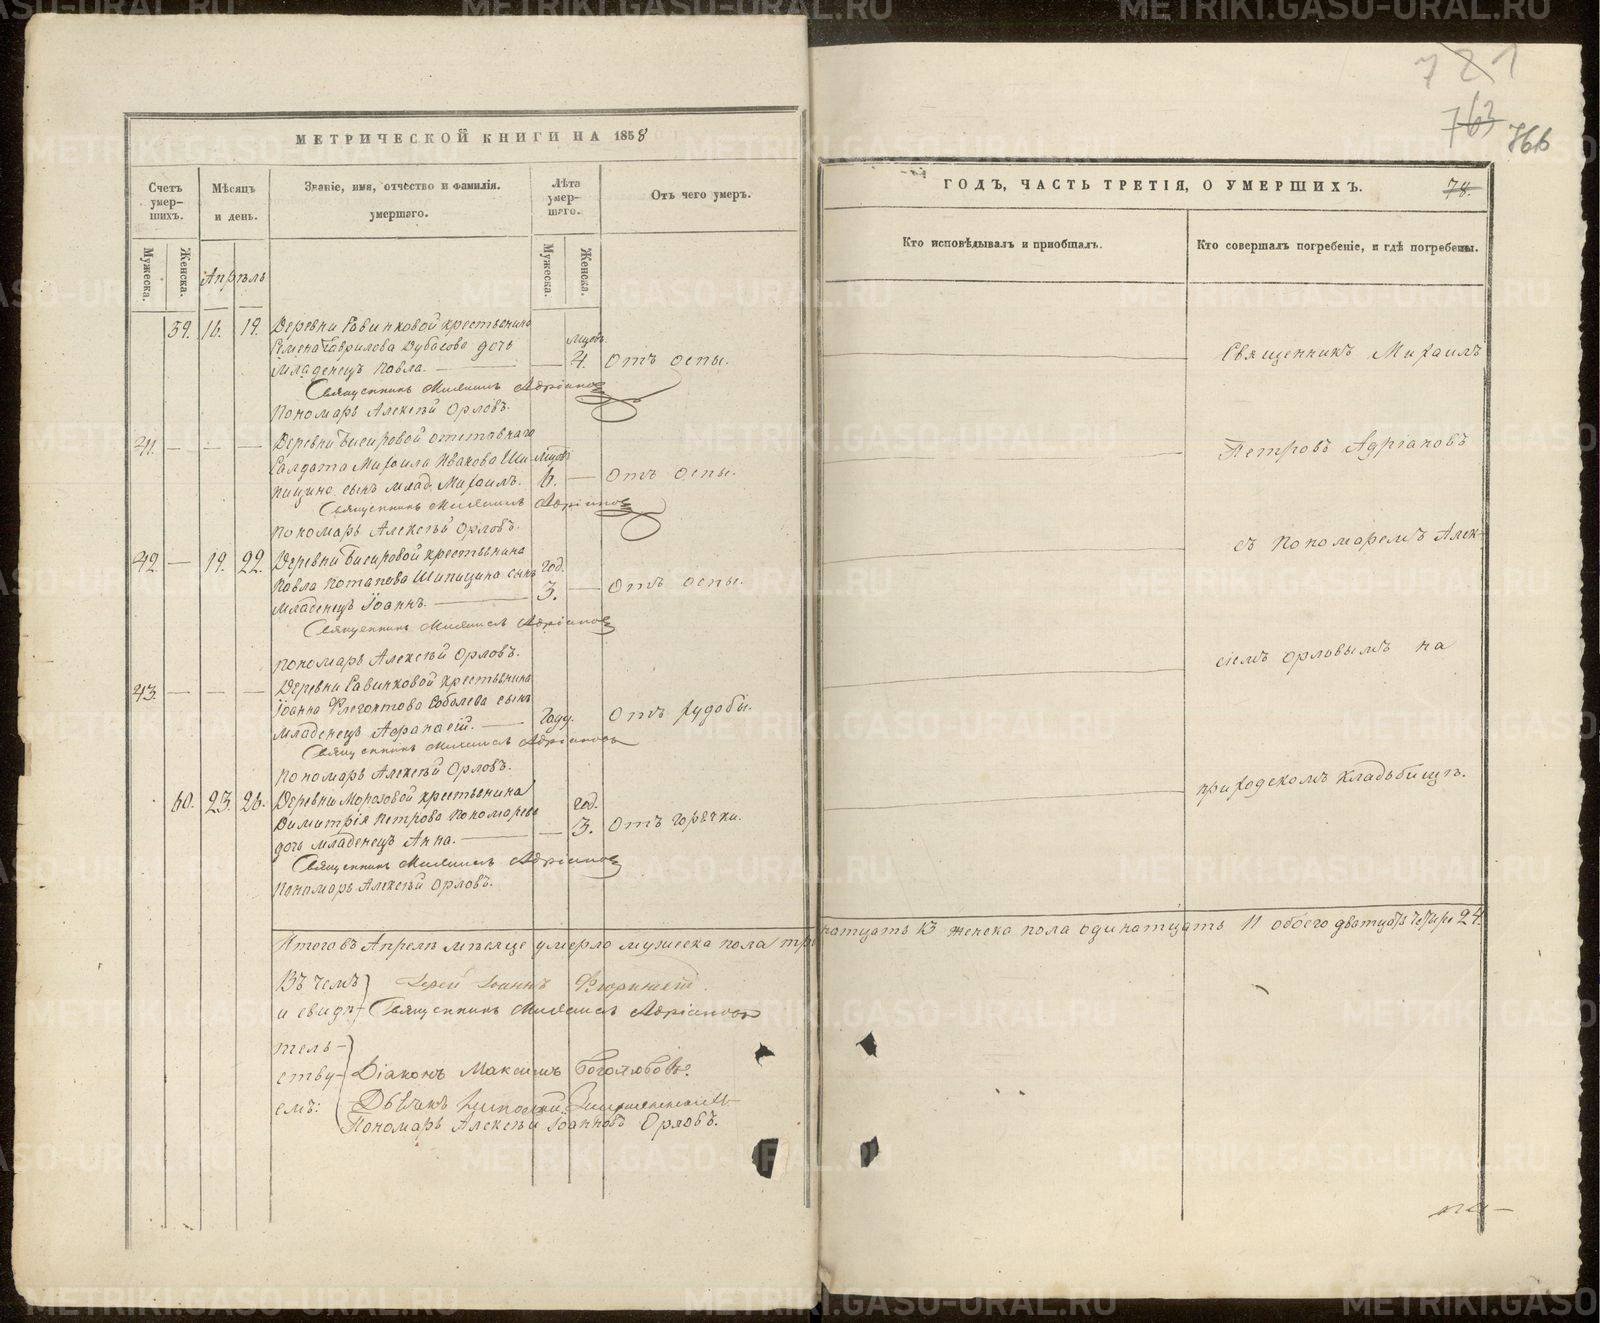 МЕТРИЧЕСКОЙ КНИГИ НА 1858
Счетъ умер-шихъ.
Мѣсяцъ и день.
Званіе, имя, отчество и фамилія. умершаго.
Лѣта умер-шаго.
Отъ чего умеръ.
Мужеска.
Женска.
Апрѣль
Мужеска.
Женска.
39. 16. 19. Деревни Савинковой крестьянина
Семена Гаврилова Дубасова дочь мцовъ
Младенецъ Павла. 4. Отъ оспы.
Священникъ Михаилъ Адріановъ
Пономарь Алексѣй Орловъ.
41. Деревни Бисеровой отставнаго
Салдата Михаила Иванова Ши- мцовъ
пицина сынъ млад. Михаилъ. 6. Отъ оспы.
Священникъ Михаилъ Адріановъ
Пономарь Алексѣй Орловъ.
42. 19. 22. Деревни Бисеровой крестьянина
Павла Потапова Шипицина сынъ год.
Младенецъ Іоаннъ. 3. Отъ оспы.
Священникъ Михаилъ Адріановъ
Пономарь Алексѣй Орловъ.
43. Деревни Савинковой крестьянина
Іоанна Флегонтова Соболева сынъ
Младенецъ Афанасій. году. Отъ худобы.
Священникъ Михаилъ Адріановъ
Пономарь Алексѣй Орловъ.
60. 23. 26. Деревни Морозовой крестьянина
Димитрія Петрова Пономарева год.
дочь младенецъ Анна. 3. Отъ горячки.
Священникъ Михаилъ Адріановъ
Пономарь Алексѣй Орловъ.
Итого въ Апрелѣ мѣсяце умерло мужеска пола три
Въ чемъ Іерей Іоаннъ
и свидѣ- Священникъ Михаилъ Адріановъ
тель-
ству- Діаконъ Максимъ Боголюбовъ.
емъ: Дьячекъ
Пономарь Алексѣй Іоанновъ Орловъ.
721
763
766
ГОДЪ, ЧАСТЬ ТРЕТІЯ, О УМЕРШИХЪ.
78.
Кто исповѣдывалъ и пріобщалъ.
Кто совершалъ погребеніе, и гдѣ погребены.
Священникъ Михаилъ
Петровъ Адріановъ
съ пономаремъ Алек-
сіемъ Орловымъ на
приходскомъ кладьбищѣ.
натцать 13 женска пола одинатцать 11 обоего дватцать четыре 24.
METRIKI.GASO-URAL.RU